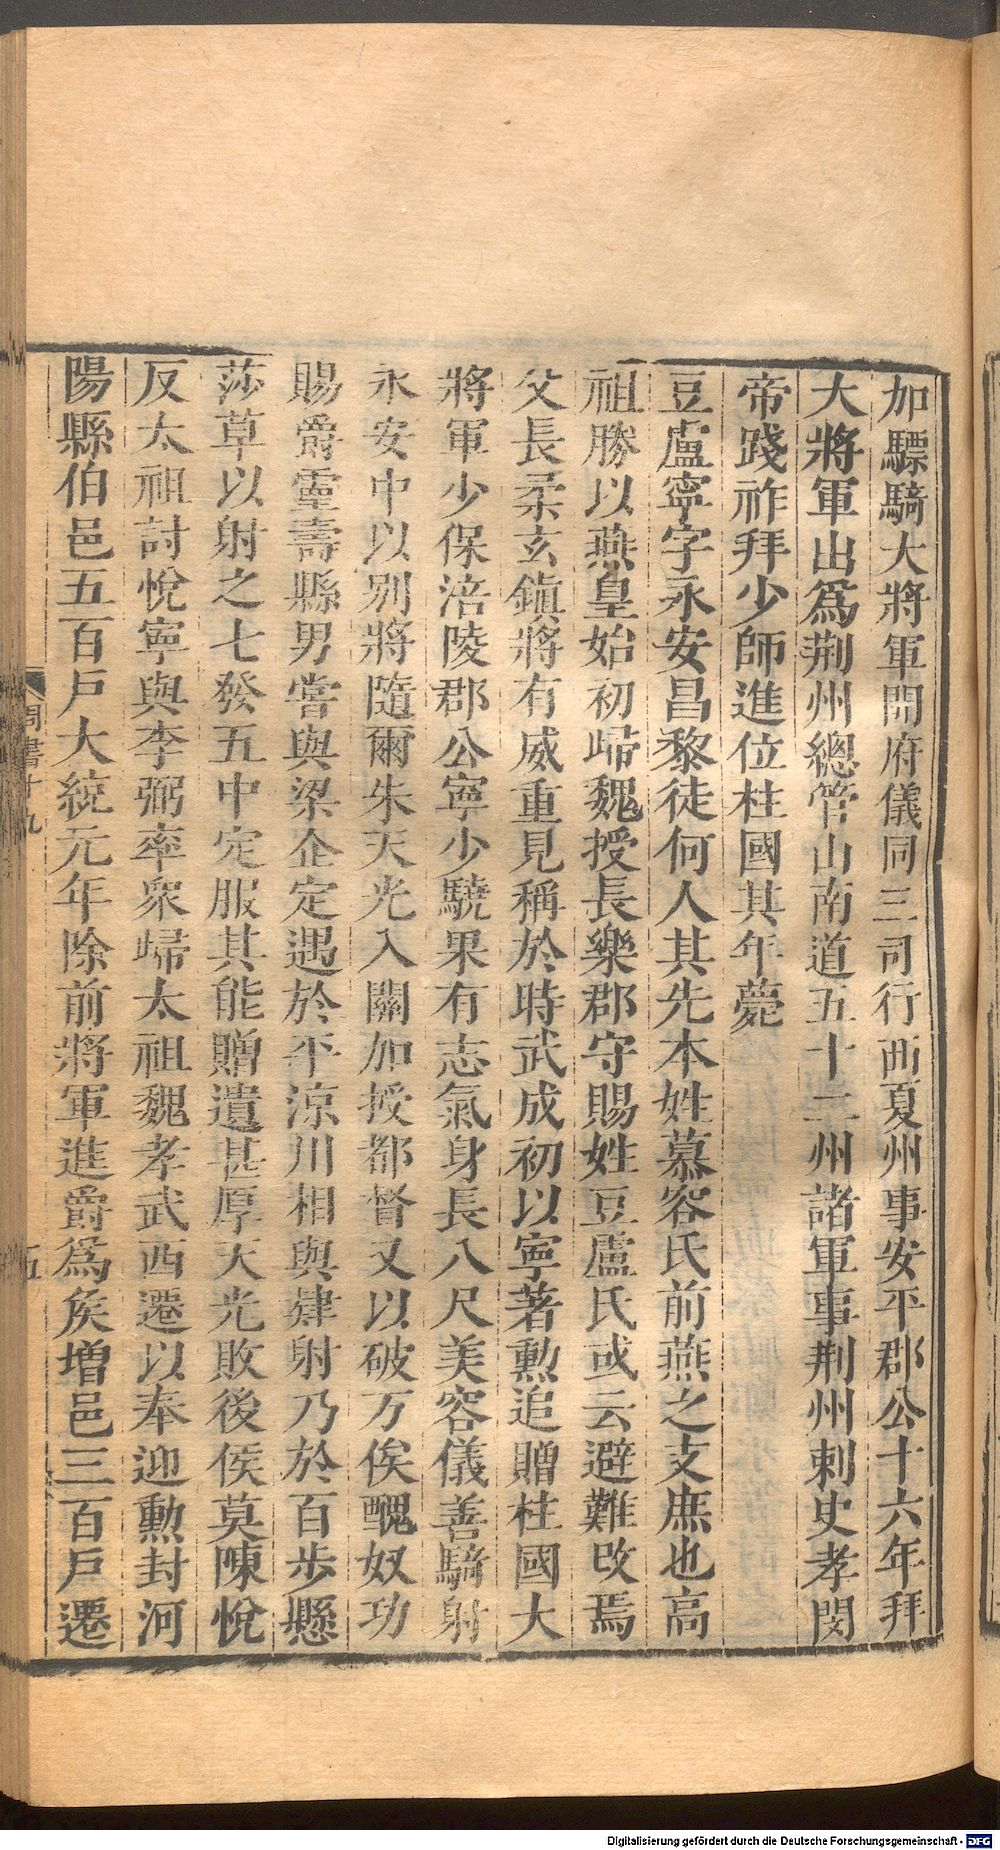 加驃騎大將軍開府儀同三司行西夏州事安平郡公十六年拜
大將軍出爲荆州總管山南道五十二州諸軍事荆州刺史孝閔
帝踐祚拜少師進位柱國其年薨
豆盧寧字永安昌黎徒何人其先本姓慕容氏前燕之支庶也高
祖勝以燕皇始初歸魏授長樂郡守賜姓豆盧氏或云避難改焉
父長柔玄鎮將有威重見稱於時武成初以寧著勲追贈柱國大
將軍少保涪陵郡公寧少驍果有志氣身長八尺美容儀善騎射
永安中以別將隨爾朱天光入關加授都督又以破万俟醜奴功
賜爵靈壽縣男嘗與梁企定遇於平涼川相與肄射乃於百步懸
莎草以射之七發五中定服其能贈遺甚厚天光敗後侯莫陳悅
反太祖討悅寧與李弼率衆歸太祖魏孝武西遷以奉迎勲封河
陽縣伯邑五百戶大統元年除前將軍進爵爲矦增邑三百戶遷
周書十九
五
Digitalisierung gefördert durch die Deutsche Forschungsgemeinschaft - DFG